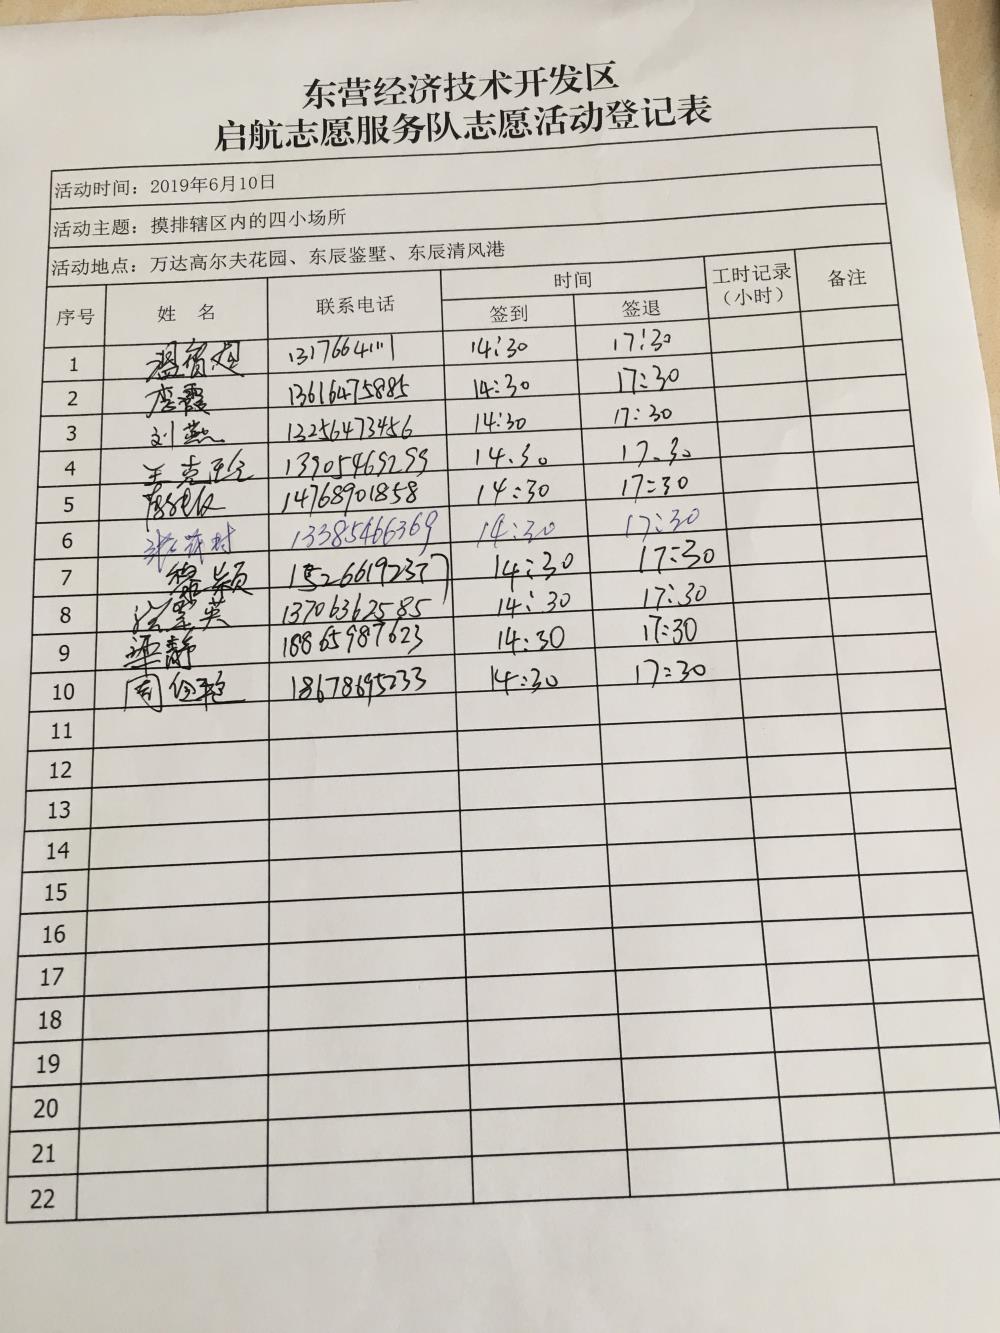 东营经济技术开发区
启航志愿服务队志愿活动登记表
活动时间：2019年6月10日
活动主题：摸排辖区内的四小场所
活动地点：万达高尔夫花园、东辰鉴墅、东辰清风港
序号 姓 名 联系电话 时间 工时记录（小时） 备注
签到 签退
1 13176641111 14:30 17:30
2 唐霞 13616475885 14:30 17:30
3 刘燕 13256473456 14:30 17:30
4 13905469299 14.30 17.30
5 14768901858 14:30 17:30
6 13385466369 14:30 17:30
7 14:30 17:30
8 13706362585 14:30 17:30
9 梁静 18865987623 14:30 17:30
10 18678695233 14:30 17:30
11
12
13
14
15
16
17
18
19
20
21
22